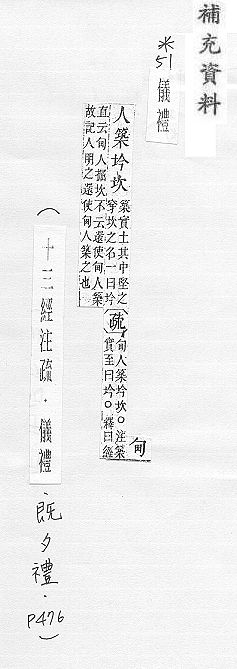 補充資料
※51 儀禮
甸
人築坅坎 築實土其中堅之穿坎之名一曰坅〔疏〕甸人築坅坎○注築實至曰坅○釋曰經
直云甸人掘坎不云還使甸人築
故記人明之還使甸人築之也
(十三經注疏．儀禮．既夕禮．P476)